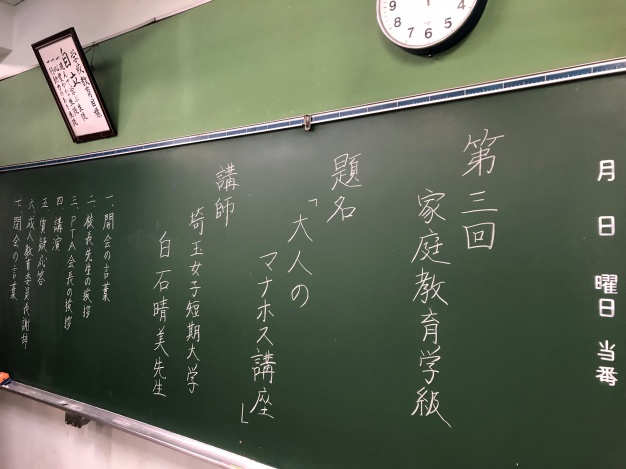 月 日 曜日 当番
第三回
家庭教育学級
題名
「大人の
マナホス講座」
講師
埼玉女子短期大学
白石晴美先生
一、開会の言葉
二、校長先生の挨拶
三、PTA会長の挨拶
四、講演
五、質疑応答
六、成人教育委員長謝辞
七、閉会の言葉
学校教育目標
自立
12
4
5
6
7
8
9